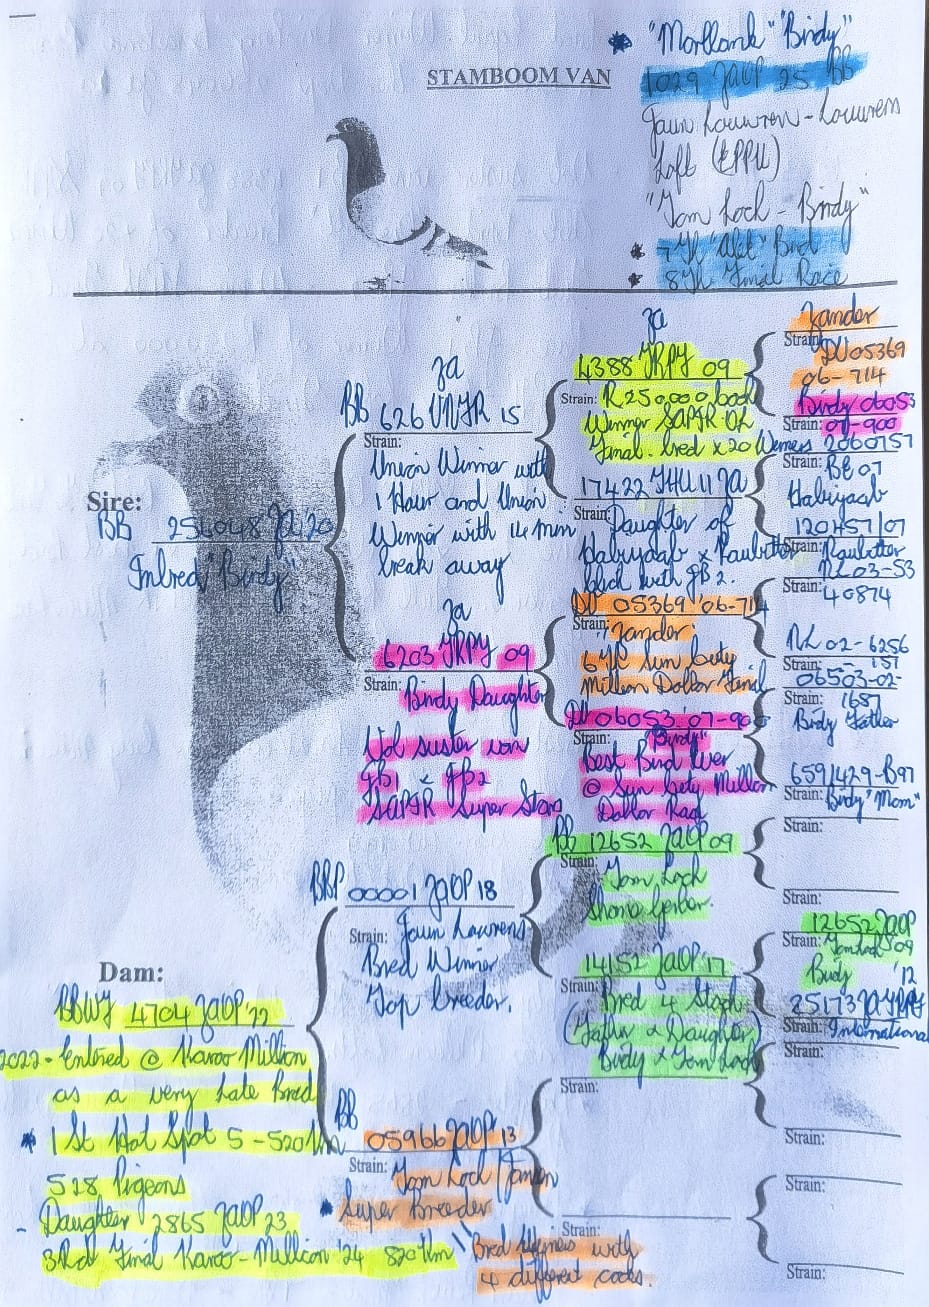 "Birdy"
STAMBOOM VAN
1029 JAOP 25 BB
Louwrens
Loft
"Tom Loch - Birdy"
Bird
8th Final Race
Sire:
BB 256048 ZA '20
Inbred "Birdy"
ZA
BB 626 15
Strain:
Union Winner with
1 Hour and Union
Winner with 14 min
break away
ZA
6203 JRPY 09
Strain: Birdy Daughter
Vol suster van
GB1 & GB2
SAPJR Super Stars
ZA
4388 JRPY 09
Strain: R250000
Winner
Final. bred x 20 Winners
17422 11 ZA
Strain: Daughter of
with GB 2.
DV 05369 '06-714
Strain:
"Zander"
6th Sun City
Million Dollar Final
DV 06053 '07-900
Strain: "Birdy"
Best Bird Ever
@ Sun City Million
Dollar
Zander
Strain:
DV05369
06-714
Birdy 06053
Strain: 07-900
2060757
Strain: BE 07
120457/07
Strain:
NL 03-53
Strain: 40874
NL 02-6256
Strain: 157
06503-02-
Strain: 1687
Birdy Father
6591429-B97
Strain: Birdy "Mom"
Dam:
BBWF 4704 JAOP '22
2022 - Entered @ Karoo Million
as a very late Bred
* 1st Hot Spot 5 - 520Km
528 Pigeons
- Daughter 2865 JAOP 23
3Rd Final Karoo-Million '24 820Km
BBP 00001 JAOP 18
Strain:
Bred Winner
Top breeder.
BB
05966 JAOP '13
Strain:
Tom Loch
* Super Breeder
Bred with
4 different cocks.
BB 12652 JAOP 09
Strain:
Tom Loch
14152 JAOP '17
Strain:
Bred 4 Stock
(Father x Daughter)
Birdy x Tom Loch
Strain:
Strain:
Strain:
Strain:
12652 JAOP
Strain: Tom Loch '09
Birdy '12
25173 ZA
Strain: International
Strain:
Strain:
Strain:
Strain: